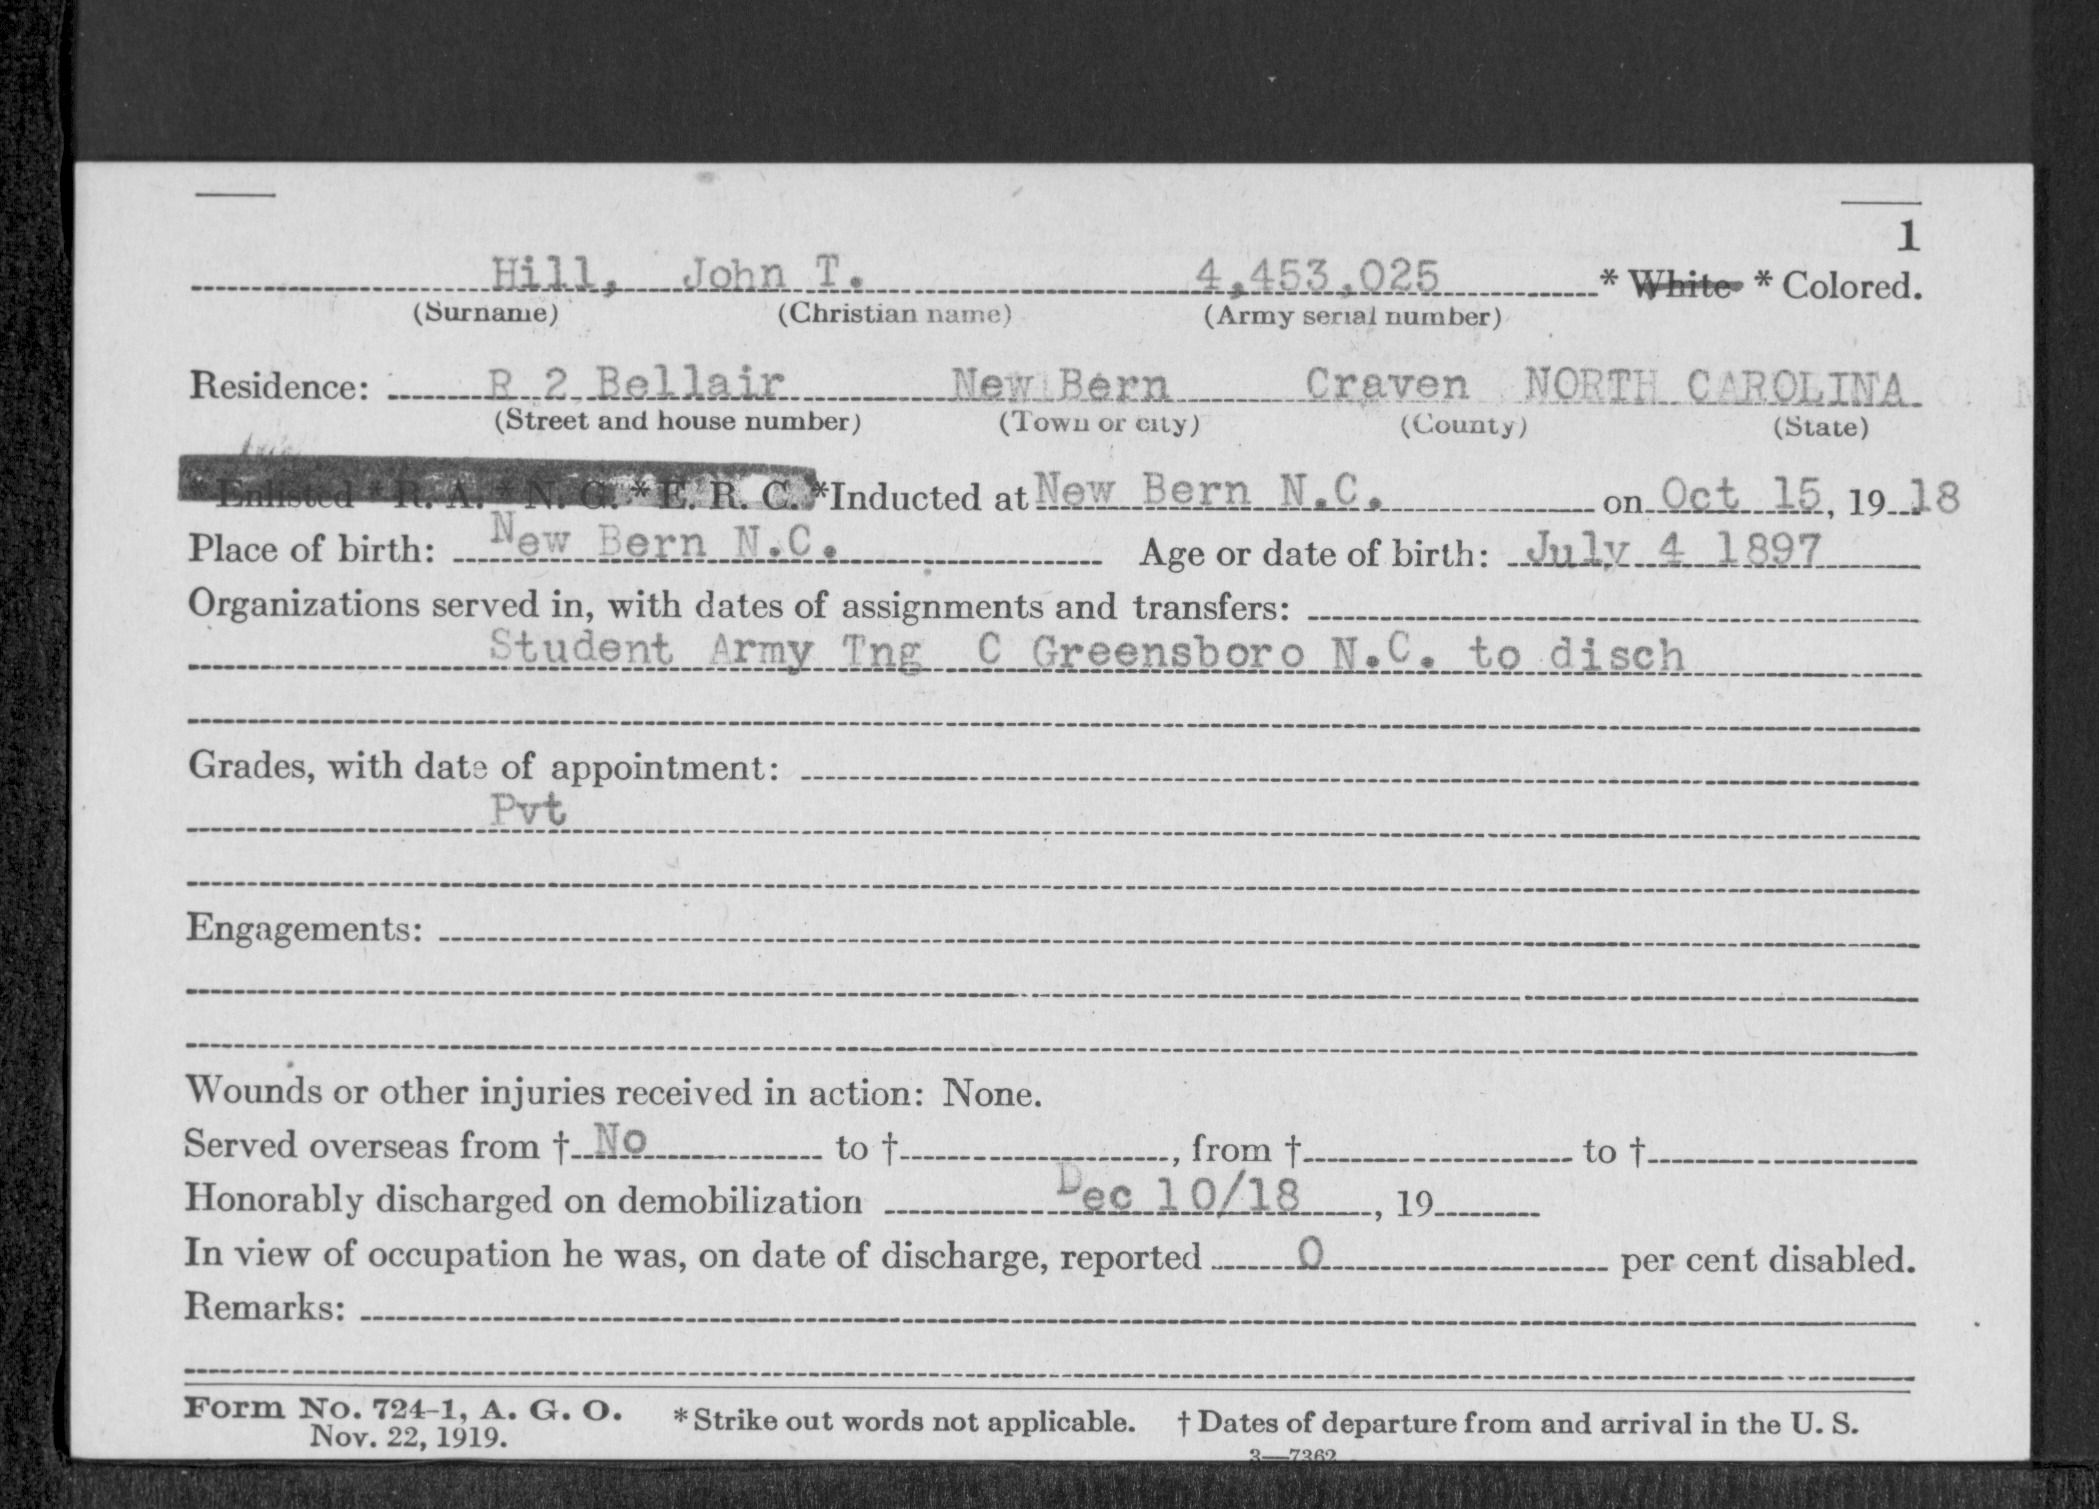 1
Hill, John T. 4,453,025 * White * Colored.
(Surname) (Christian name) (Army serial number)
Residence: R 2 Bellair New Bern Craven NORTH CAROLINA
(Street and house number) (Town or city) (County) (State)
* Enlisted * R. A. * N. G. * E. R. C. *Inducted at New Bern N.C. on Oct 15, 19 18
Place of birth: New Bern N.C. Age or date of birth: July 4 1897
Organizations served in, with dates of assignments and transfers:
Student Army Tng C Greensboro N.C. to disch
Grades, with date of appointment:
Pvt
Engagements:
Wounds or other injuries received in action: None.
Served overseas from † No to †, from † to †
Honorably discharged on demobilization Dec 10/18, 19
In view of occupation he was, on date of discharge, reported 0 per cent disabled.
Remarks:
Form No. 724-1, A. G. O. * Strike out words not applicable. † Dates of departure from and arrival in the U. S.
Nov. 22, 1919.
3—7362